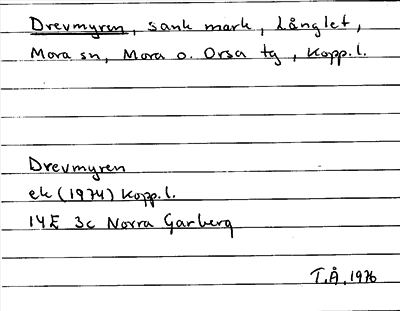 Drevmyren, sank mark, Långlet,
Mora sn, Mora o. Orsa tg, Kopp.l.
Drevmyren
ek (1974) Kopp.l.
14E 3c Norra Garberg
T.Å. 1976